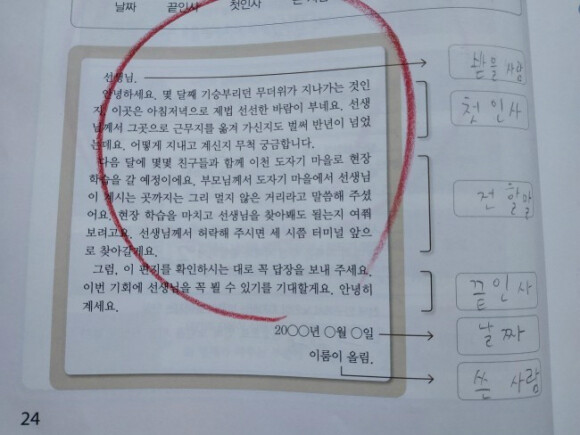 날짜 끝인사 첫인사
선생님.
안녕하세요. 몇 달째 기승부리던 무더위가 지나가는 것인
지, 이곳은 아침저녁으로 제법 선선한 바람이 부네요. 선생
님께서 그곳으로 근무지를 옮겨 가신지도 벌써 반년이 넘었
는데요. 어떻게 지내고 계신지 무척 궁금합니다.
다음 달에 몇몇 친구들과 함께 이천 도자기 마을로 현장
학습을 갈 예정이에요. 부모님께서 도자기 마을에서 선생님
이 계시는 곳까지는 그리 멀지 않은 거리라고 말씀해 주셨
어요. 현장 학습을 마치고 선생님을 찾아봬도 될는지 여쭤
보려고요. 선생님께서 허락해 주시면 세 시쯤 터미널 앞으
로 찾아갈게요.
그럼, 이 편지를 확인하시는 대로 꼭 답장을 보내 주세요.
이번 기회에 선생님을 꼭 뵐 수 있기를 기대할게요. 안녕히
계세요.
20○○년 ○월 ○일
이름이 올림.
받을 사람
첫 인사
전할 말
끝 인 사
날 짜
쓴 사람
24